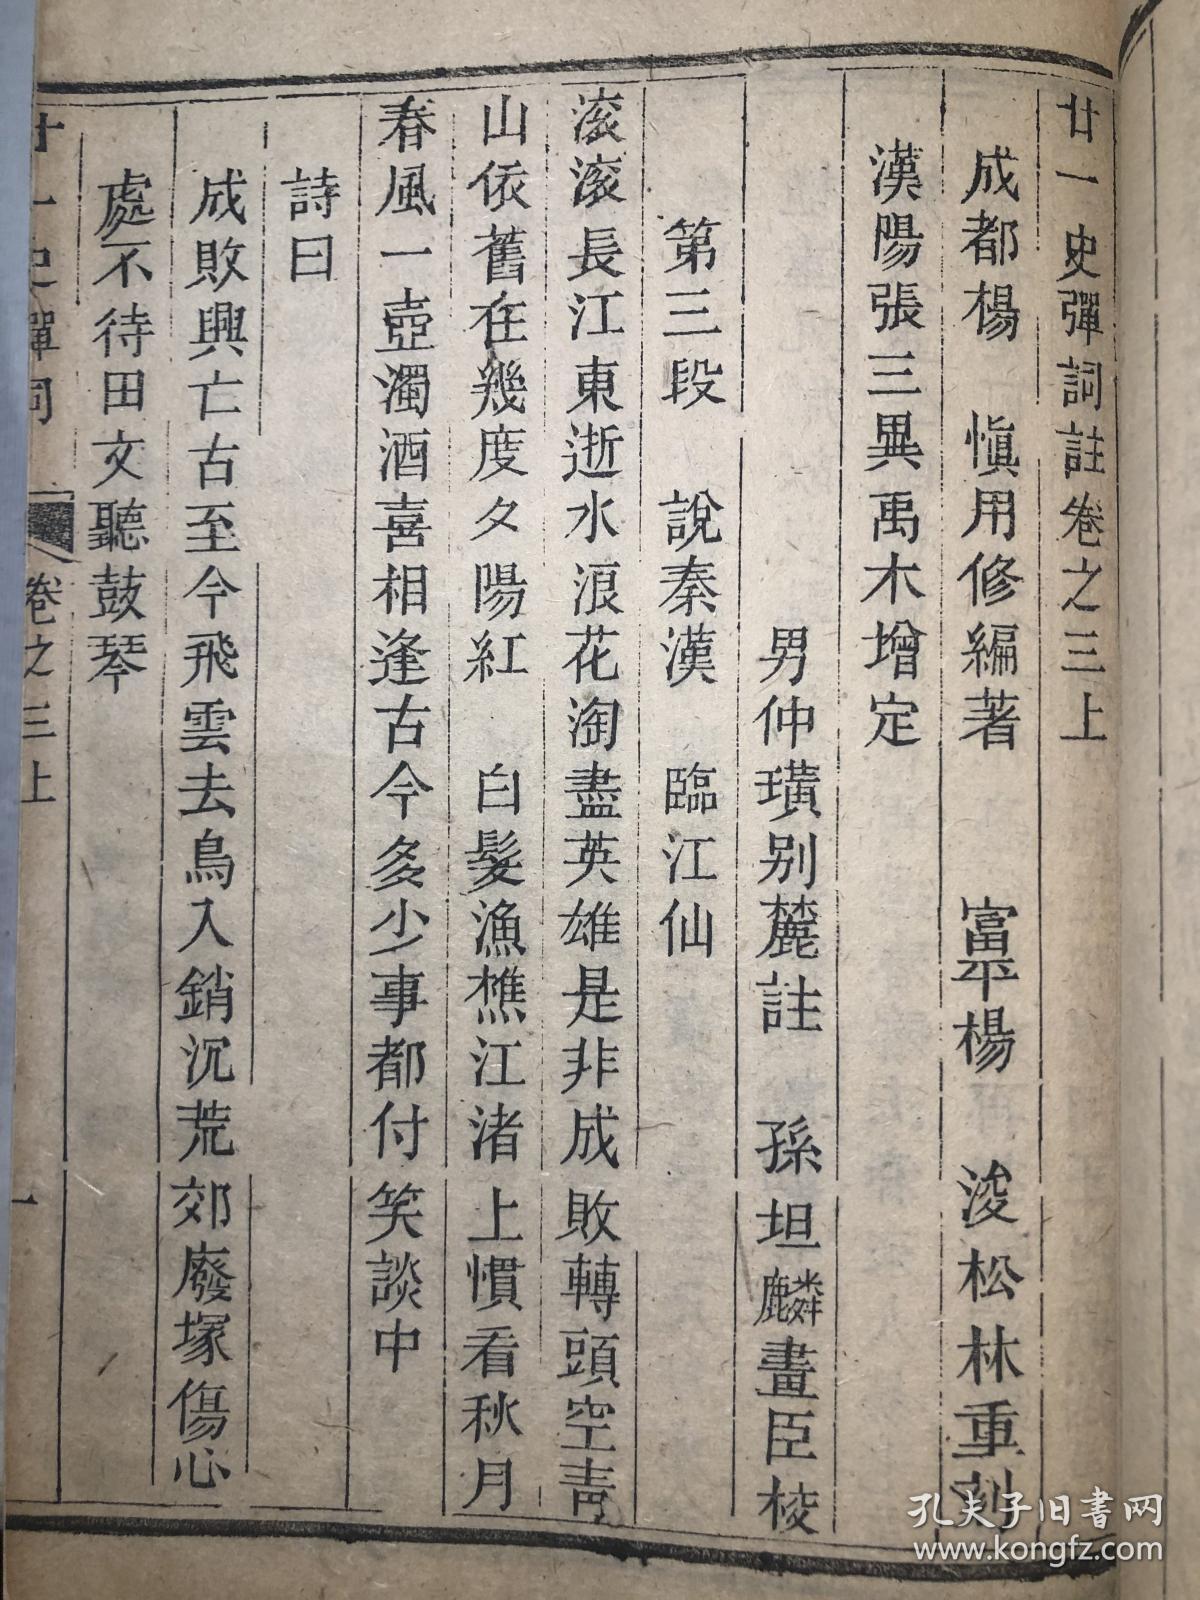 廿一史彈詞註卷之三上
成都楊　慎用修編著　富平楊　浚松林重刋
漢陽張三異禹木增定
男仲璜别麓註　孫坦麟畫臣校
第三段　說秦漢　臨江仙
滚滚長江東逝水浪花淘盡英雄是非成敗轉頭空青
山依舊在幾度夕陽紅　白髮漁樵江渚上慣看秋月
春風一壺濁酒喜相逢古今多少事都付笑談中
詩曰
成敗興亡古至今飛雲去鳥入銷沉荒郊廢塚傷心
處不待田文聽鼓琴
廿一史彈詞　卷之三上　一
孔夫子旧书网
www.kongfz.com